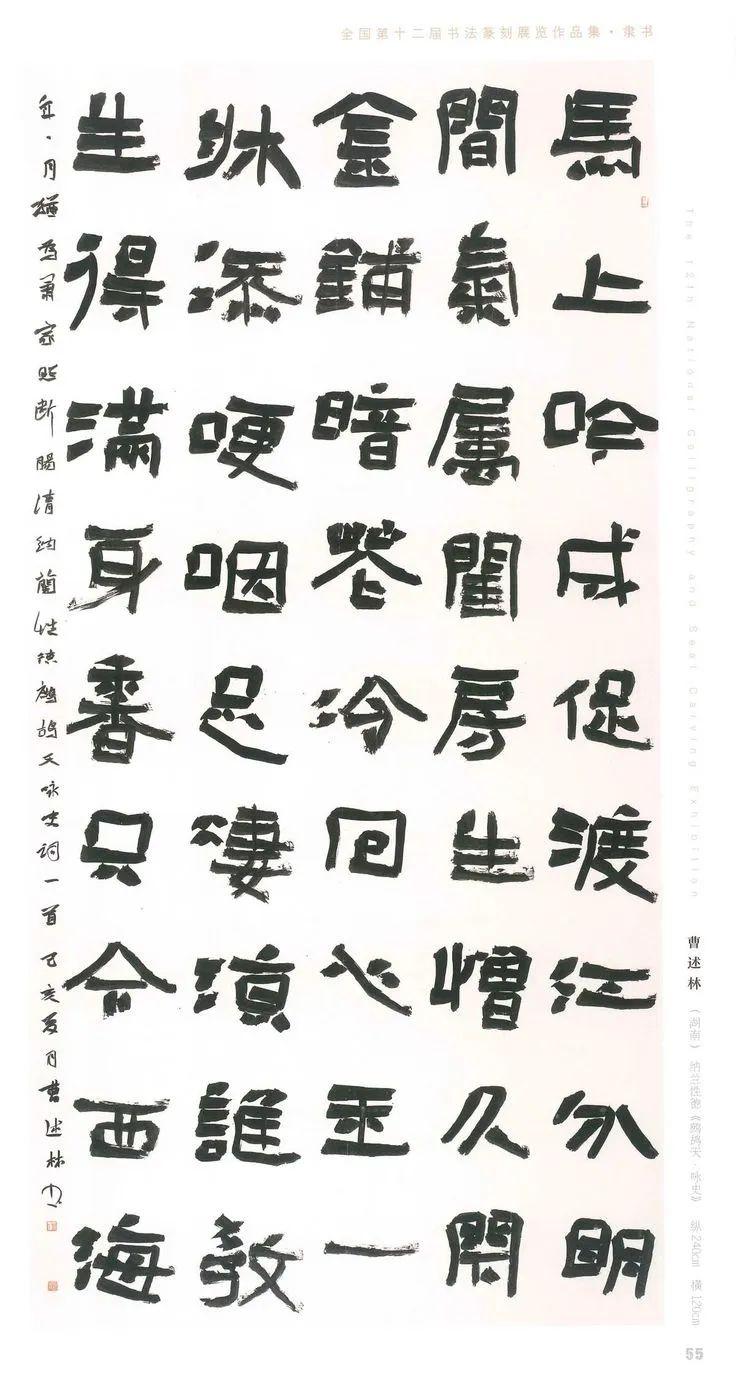 全国第十二届书法篆刻展览作品集·隶书
馬上吟成促渡江分明
間氣屬閨房生憎久閉
金鋪暗花冷回心玉一
牀添哽咽足淒涼誰教
生得滿身香只今西海
年、月猶爲蕭家照斷腸清納蘭性德鷓鴣天詠史詞一首己亥夏月曹述林書
The 12th National Calligraphy and Seal Carving Exhibition
曹述林（湖南）纳兰性德《鹧鸪天·咏史》 纵240cm 横120cm
55